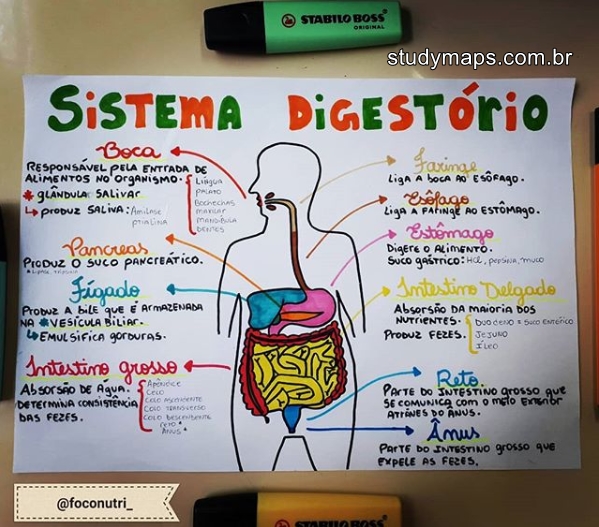 STABILO BOSS
ORIGINAL
studymaps.com.br
SISTEMA DIGESTÓRIO
Boca
RESPONSÁVEL PELA ENTRADA DE
ALIMENTOS NO ORGANISMO.
* GLÂNDULA SALIVAR
↳ PRODUZ SALIVA: AMILASE
PTIALINA
LÍNGUA
PALATO
BOCHECHAS
MAXILAR
MANDÍBULA
DENTES
Pancreas
PRODUZ O SUCO PANCREÁTICO.
Fígado
PRODUZ A BILE QUE É ARMAZENADA
NA *VESÍCULA BILIAR.
↳ EMULSIFICA GORDURAS.
Intestino grosso
ABSORSÃO DE ÁGUA.
DETERMINA CONSISTÊNCIA
DAS FEZES.
APÊNDICE
CECO
COLO ASCENDENTE
COLO TRANSVERSO
COLO DESCENDENTE
RETO *
ANUS *
Faringe
LIGA A BOCA AO ESÔFAGO.
Esôfago
LIGA A FARINGE AO ESTÔMAGO.
Estômago
DIGERE O ALIMENTO.
SUCO GÁSTRICO: HCL, PEPSINA, MUCO
Intestino Delgado
ABSORSÃO DA MAIORIA DOS
NUTRIENTES.
PRODUZ FEZES.
DUODENO = SUCO ENTÉRICO
JEJUNO
ÍLEO
Reto
PARTE DO INTESTINO GROSSO QUE
SE COMUNICA COM O MEIO EXTERIOR
ATRAVES DO ANUS.
Ânus
PARTE DO INTESTINO GROSSO QUE
EXPELE AS FEZES.
@foconutri_
STABILO BOSS